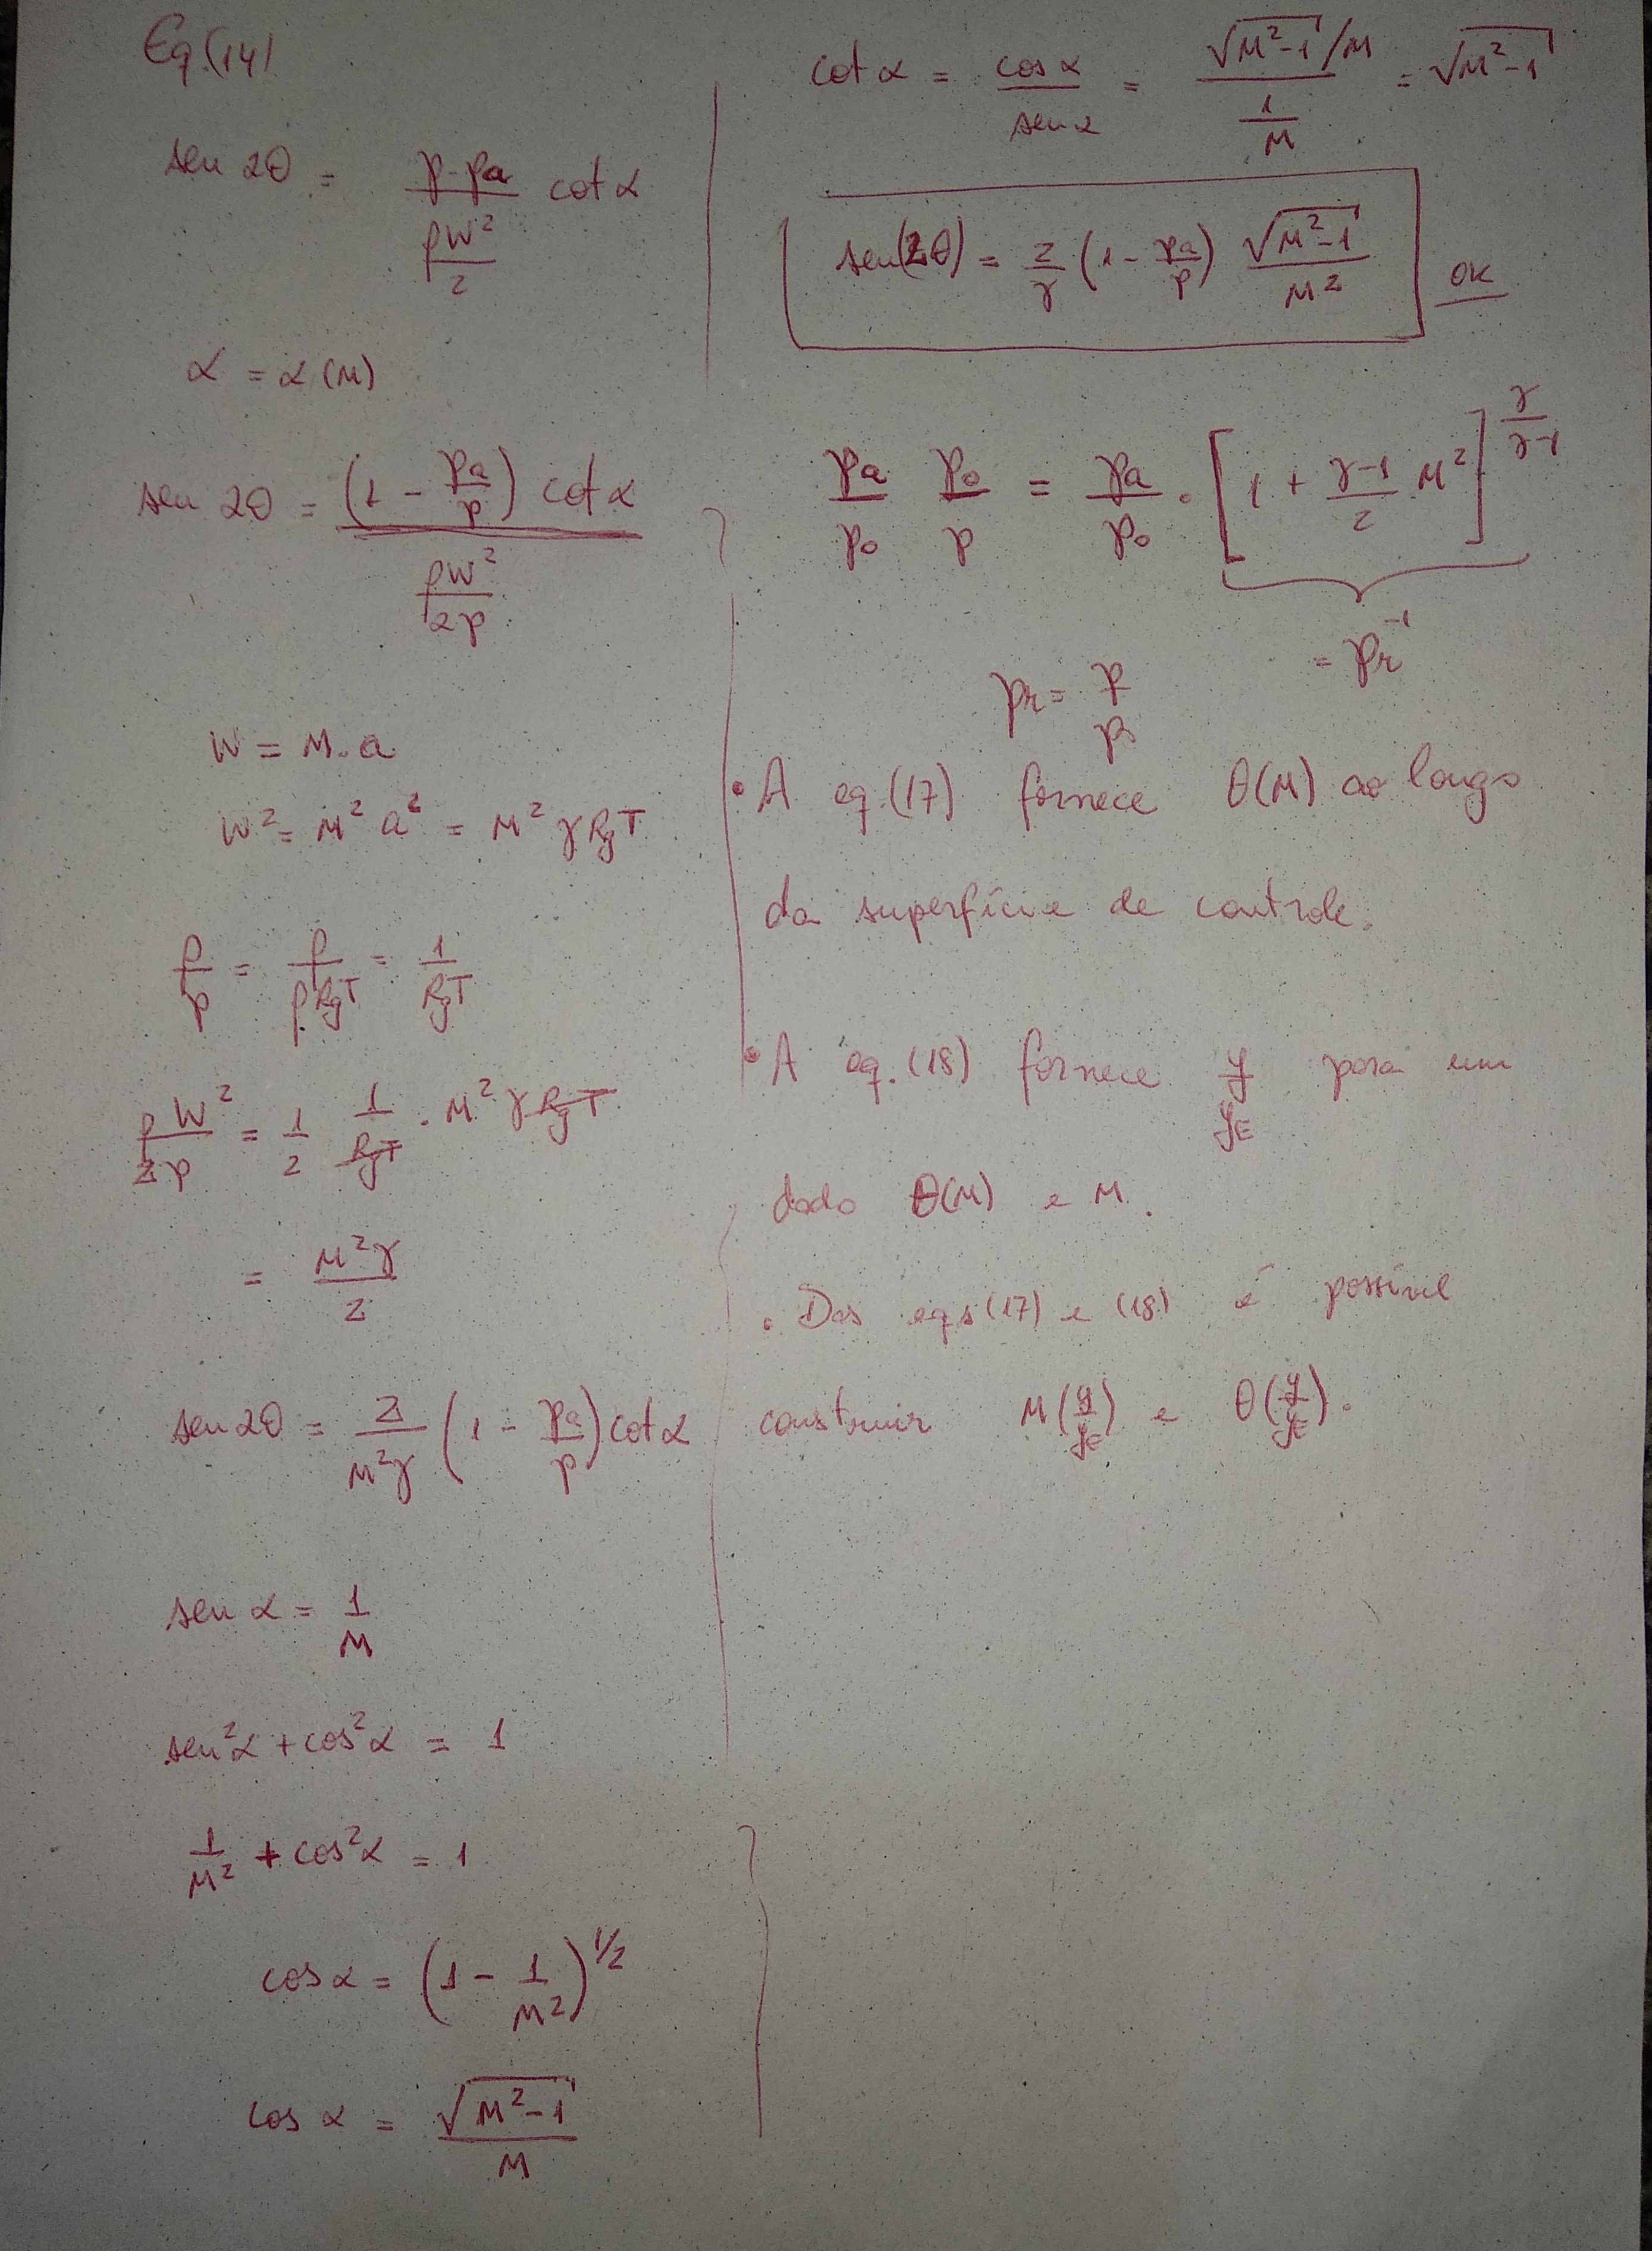 Eq.(14)
sen 2θ = (p-pa)/(ρW²/2) cot α
α = α(M)
sen 2θ = (1 - pa/p) cot α / (ρW²/2p)
W = M.a
W² = M² a² = M² γ RgT
ρ/p = ρ/(ρRgT) = 1/(RgT)
ρW²/2p = 1/2 1/(RgT) . M² γ RgT
= M²γ/2
sen 2θ = 2/(M²γ) (1 - pa/p) cot α
sen α = 1/M
sen²α + cos²α = 1
1/M² + cos²α = 1
cos α = (1 - 1/M²)^1/2
cos α = √(M²-1)/M
cot α = cos α/sen α = (√(M²-1)/M)/(1/M) = √(M²-1)
sen(2θ) = 2/γ (1 - pa/p) √(M²-1)/M² OK
pa/p₀ p₀/p = pa/p₀ . [1 + (γ-1)/2 M²]^(γ/(γ-1))
= pr⁻¹
pr = p/p₀
• A eq.(17) fornece θ(M) ao longo
da superfície de controle.
• A eq.(18) fornece y/yE para um
dado θ(M) e M.
• Das eqs(17) e (18) é possível
construir M(y/yE) e θ(y/yE).